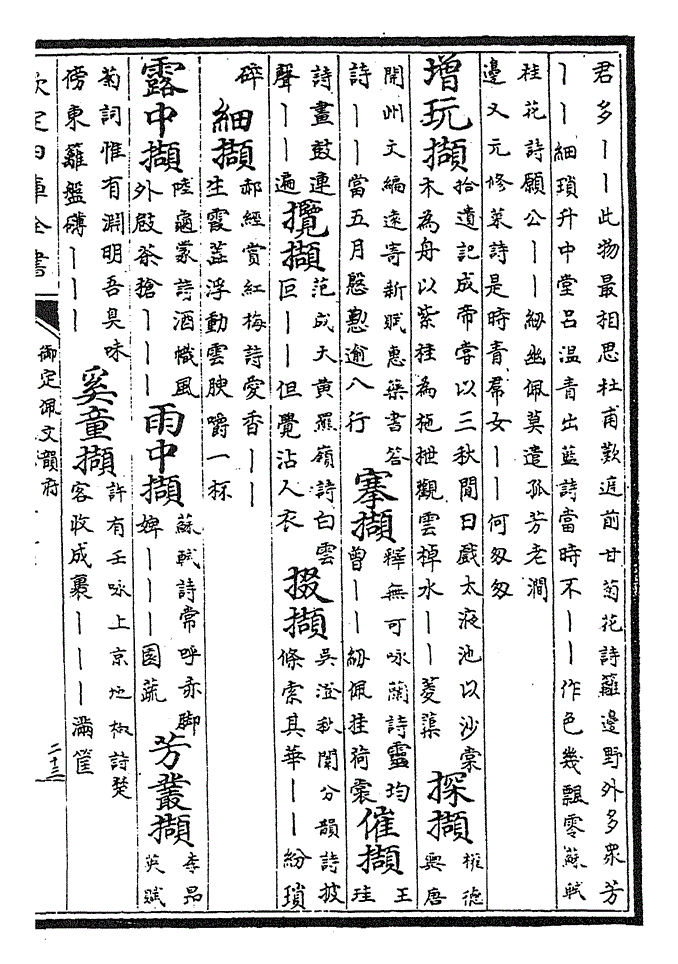 君多丨丨此物最相思杜甫歎庭前甘菊花詩籬邊野外多衆芳
丨丨細瑣升中堂呂溫青出藍詩當時不丨丨作色幾飄零蘇軾
桂花詩願公丨丨紉幽佩莫遣孤芳老澗
邊又元修菜詩是時青帬女丨丨何匆匆
增玩擷
拾遺記成帝嘗以三秋閒日戲太液池以沙棠
木為舟以紫桂為柂拽觀雲棹水丨丨菱蕖
探擷
權德
輿唐
開州文編遠寄新賦惠藥書答
詩丨丨當五月慇懃逾八行
搴擷
釋無可咏蘭詩靈均
曾丨丨紉佩挂荷裳
催擷
王
珪
詩畫鼓連
聲丨丨遍
攬擷
范成大黃羆嶺詩白雲
叵丨丨但覺沾人衣
掇擷
吳澄秋閣分韻詩披
條索其華丨丨紛瑣
碎
細擷
郝經賞紅梅詩愛香丨丨
生霞蓋浮動雲腴嚼一杯
露中擷
陸龜蒙詩酒幟風
外㪣茶槍丨丨丨
雨中擷
蘇軾詩常呼赤脚
婢丨丨丨園蔬
芳叢擷
李昂
英賦
菊詞惟有淵明吾臭味
傍東籬盤礴丨丨丨
奚童擷
許有壬咏上京地椒詩楚
客收成裹丨丨丨滿筐
欽定四庫全書
御定佩文韻府
二十三